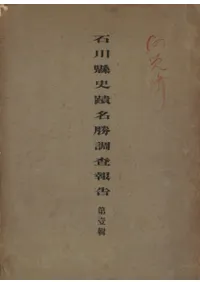 石川縣史蹟名勝調査報告
第壹輯